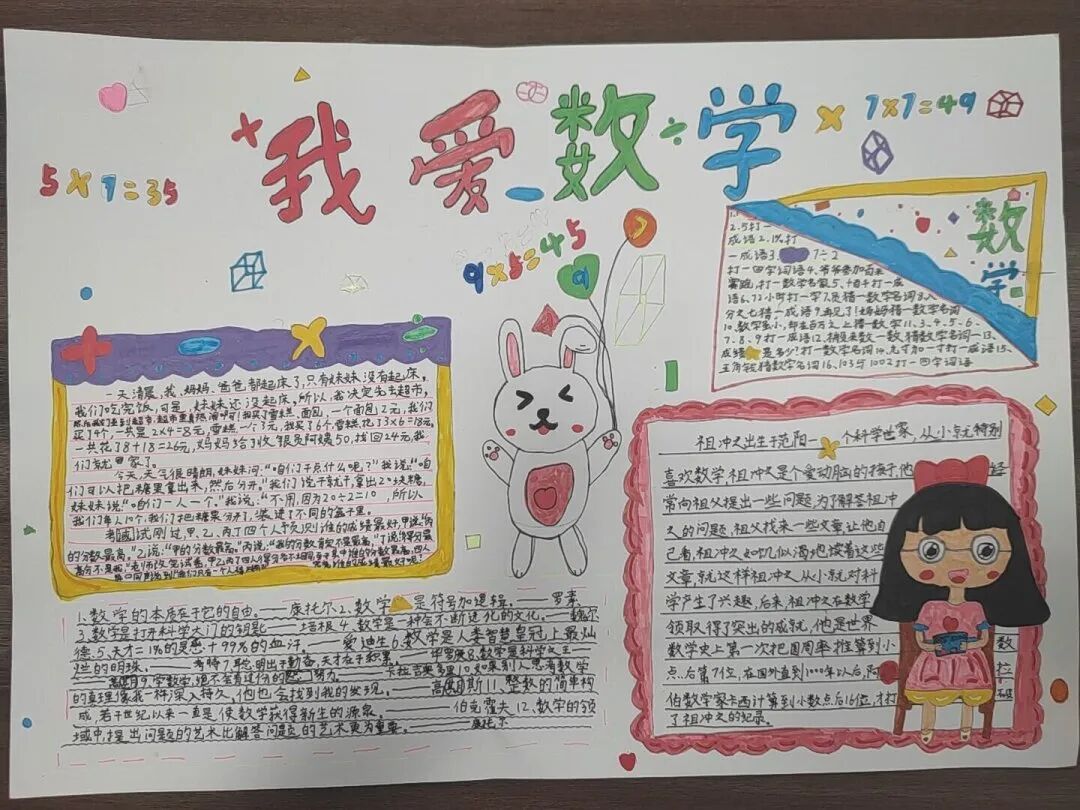 我爱数学
5×7=35
7×7=49
9×5=45
数学
2.5打一
成语2.1%打
一成语3. 7÷2
打一四字词语4.爷爷参加百米
赛跑,打一数学名家5.1百千打一成
语6.72小时打一字7.员猜一数学名词8.八
分之七猜一成语9.再见了!妈妈猜一数学名词
10.数学虽小,却在百万之上猜一数学11.3、4、5、6、
7、8、9打一成语12.
成绩是多少?打一数学名词14.九寸加一寸打一成语15.
五角钱猜数学名词16.103与1002打一四字词语
一天清晨,我、妈妈、爸爸,都起床了,只有妹妹没有起床,
我们吃完饭,可是,妹妹还没起床,所以,我决定先去超市,
买了4个,一共是2×4=8元,雪糕一个3元,我买了6个,雪糕花了3×6=18元,
一共花了8+18=26元,妈妈给了收银员阿姨50,找回24元,我
们就回家了。
今天,天气很晴朗,妹妹问:“咱们干点什么呢?”我说:“咱
们可以把糖果拿出来,然后分开”我们说干就干,拿出20块糖,
妹妹说:“咱们一人一个”我说:“不用,因为20÷2=10,所以
我们每人10个,我们把糖果分好了,装进了不同的盒子里。
考试刚过,甲、乙、丙、丁四个人争员测谁的成绩最好,甲说:“丙
的分数最高。”乙说:“甲的分数最高。”丙说:“我的分数着实不是最高”
1.数学的本质在于它的自由。——康托尔2.数学是符号加逻辑。——罗素
3.数学是打开科学大门的钥匙——培根4.数学是一种会不断进化的文化。——魏尔
德5.天才=1%的灵感+99%的血汗。——爱迪生6.数学是人类智慧皇冠上最灿
烂的明珠。——考特7.聪明出于勤奋,天才在于积累。——华罗庚8.数学是科学之王
——高斯9.学数学,绝不会有过份的努力。——卡拉吉奥多里10.如果别人思考数学
的真理像我一样深入持久,他也会找到我的发现。——高斯11.整数的简单构
成,若干世纪以来一直是使数学获得新生的源泉。——伯克霍夫12.数学的领
域中,提出问题的艺术比解答问题的艺术更为重要。——康托尔
祖冲之出生于范阳一个科学世家,从小就特别
喜欢数学,祖冲之是个爱动脑的孩子,他经
常向祖父提出一些问题,为了解答祖冲
之的问题,祖父找来一些文章让他自
己看,祖冲之如饥似渴地读着这些
文章,就这样祖冲之从小就对科
学产生了兴趣,后来,祖冲之在数学
领取得了突出的成就,他是世界
数学史上第一次把圆周率推算到小数
点后第7位,在国外直到1000年以后,阿拉
伯数学家卡西计算到小数点后16位,才打破
了祖冲之的纪录。